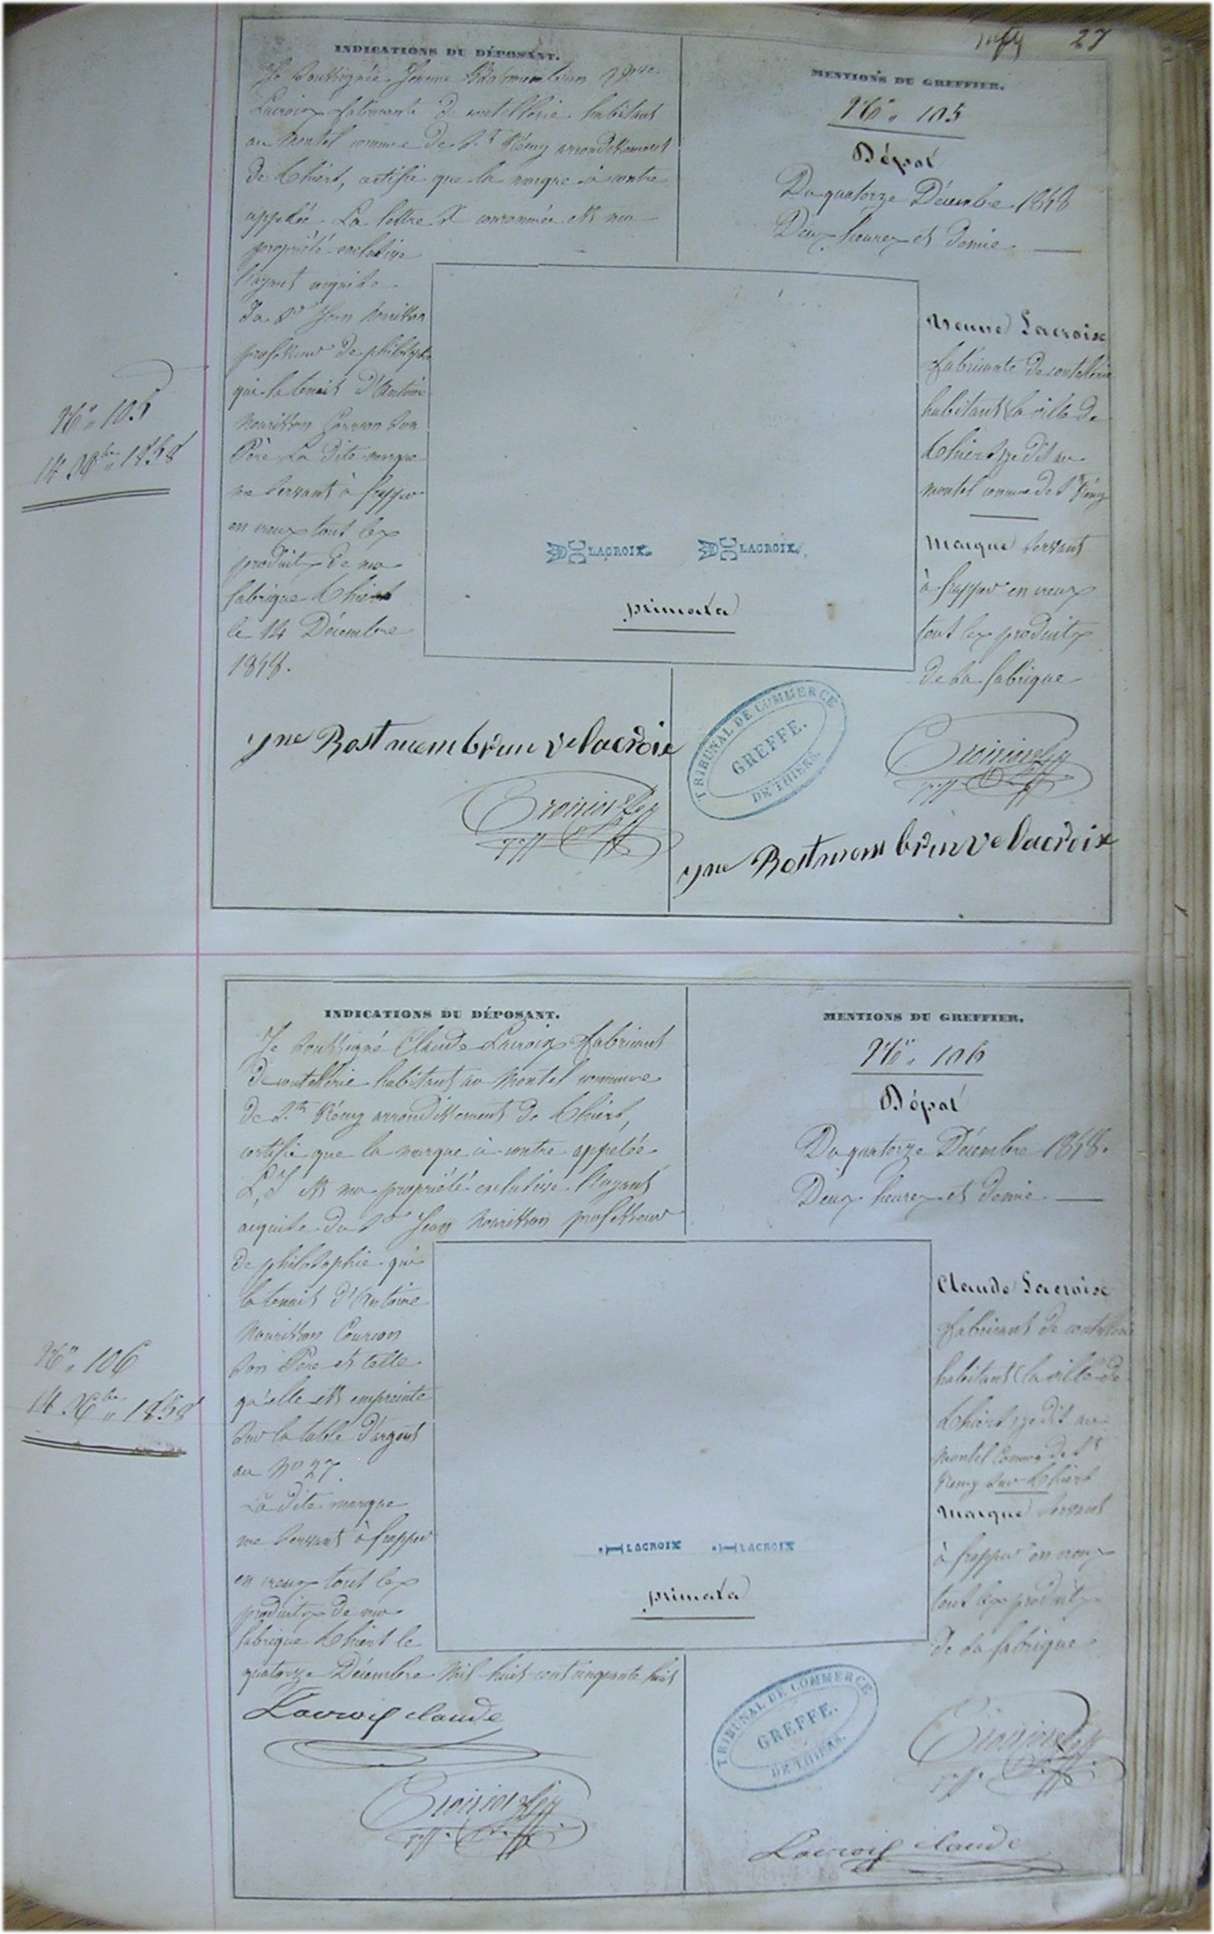 27
INDICATIONS DU DÉPOSANT.
Je soussignée Jeanne Rostmembrun Vve
Lacroix fabricante de coutellerie habitant
au Montel commune de St Rémy arrondissement
de Thiers, certifie que la marque ci contre
appelée La lettre X couronnée est ma
propriété exclusive
l'ayant acquise
du Sr Jean Nourisson
professeur de philosophie
qui la tenait d'Antoine
Nourisson Courcon son
Père La dite marque
me servant à frapper
en creux tout les
produits de ma
fabrique Thiers
le 14 Décembre
1858.
MENTIONS DU GREFFIER.
No. 105
Dépot
Du quatorze Décembre 1858
Deux heures et demie
Veuve Lacroix
fabricante de coutellerie
habitant la ville de
Thiers ze dit au
montel commune de St Rémy
Marque servant
à frapper en creux
tout les produits
de sa fabrique
No. 105
14 Xbre 1858
LACROIX LACROIX
primata
jne Rostmembrun ve lacroix
TRIBUNAL DE COMMERCE
GREFFE.
DE THIERS.
jne Rostmembrun ve lacroix
INDICATIONS DU DÉPOSANT.
Je soussigné Claude Lacroix fabricant
de coutellerie habitant au Montel commune
de St Rémy arrondissement de Thiers,
certifie que la marque ci contre appelée
est ma propriété exclusive l'ayant
acquise du Sr Jean Nourisson professeur
de philosophie qui
la tenait d'Antoine
Nourisson Courcon
son Père et telle
qu'elle est empreinte
sur la table d'argent
au No 27.
La dite marque
me servant à frapper
en creux tout les
produits de ma
fabrique Thiers le
quatorze Décembre mil huit cent cinquante huit
MENTIONS DU GREFFIER.
No. 106
Dépot
Du quatorze Décembre 1858.
Deux heures et demie
Claude Lacroix
fabricant de coutellerie
habitant la ville de
Thiers ze dit au
montel Comme de St
Remy sur Thiers
Marque servant
à frapper en creux
tout les produits
de sa fabrique
No. 106
14 Xbre 1858
LACROIX LACROIX
primata
Lacroix claude
TRIBUNAL DE COMMERCE
GREFFE.
DE THIERS.
Lacroix claude